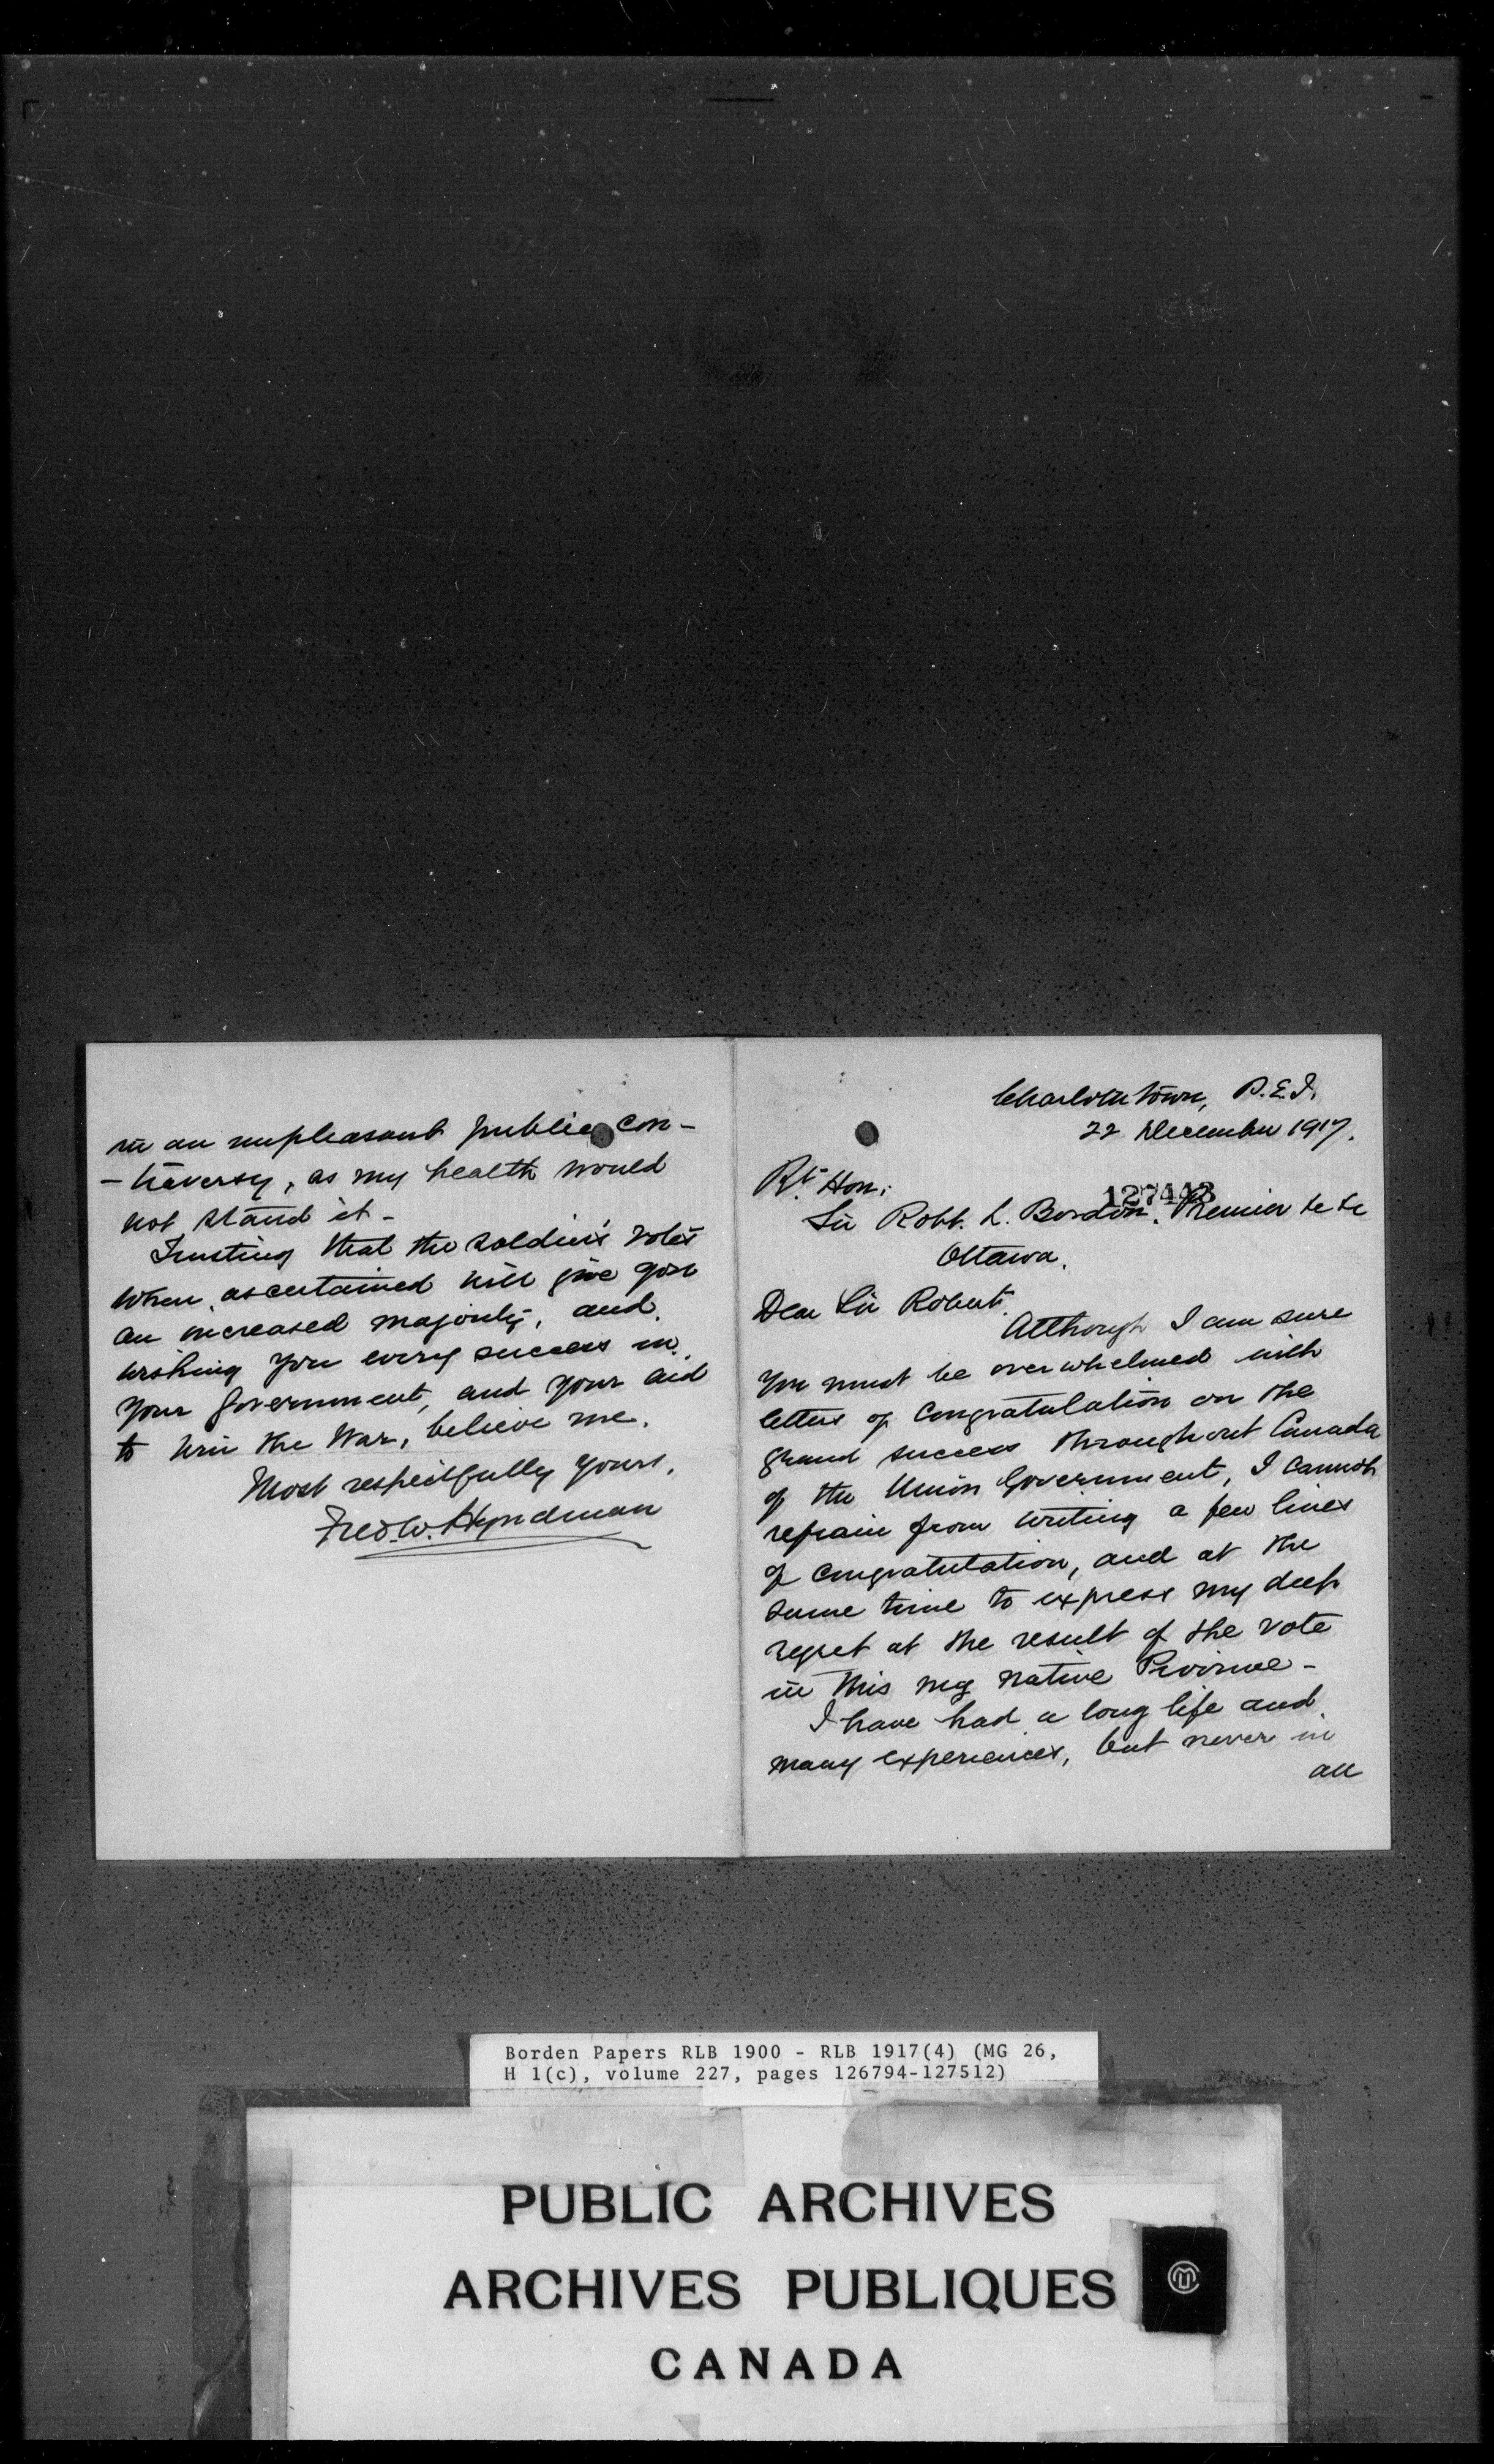 in an unpleasant public con-
-troversy, as my health would
not stand it -
Trusting that the soldier's votes
when ascertained will give you
an increased majority, and
wishing you every success in
your Government, and your aid
to win the War, believe me.
Most respectfully yours,
Fred. W. Hyndman
Charlottetown, P.E.I.
22 December 1917.
Rt. Hon:
127443
Sir Robt. L. Borden. Premier &c &c
Ottawa.
Dear Sir Robert.
Although I am sure
you must be overwhelmed with
letters of congratulation on the
grand success throughout Canada
of the Union Government, I cannot
refrain from writing a few lines
of congratulation, and at the
same time to express my deep
regret at the result of the vote
in this my native Province -
I have had a long life and
many experiences, but never in
all
Borden Papers RLB 1900 - RLB 1917(4) (MG 26,
H 1(c), volume 227, pages 126794-127512)
PUBLIC ARCHIVES
ARCHIVES PUBLIQUES
CANADA